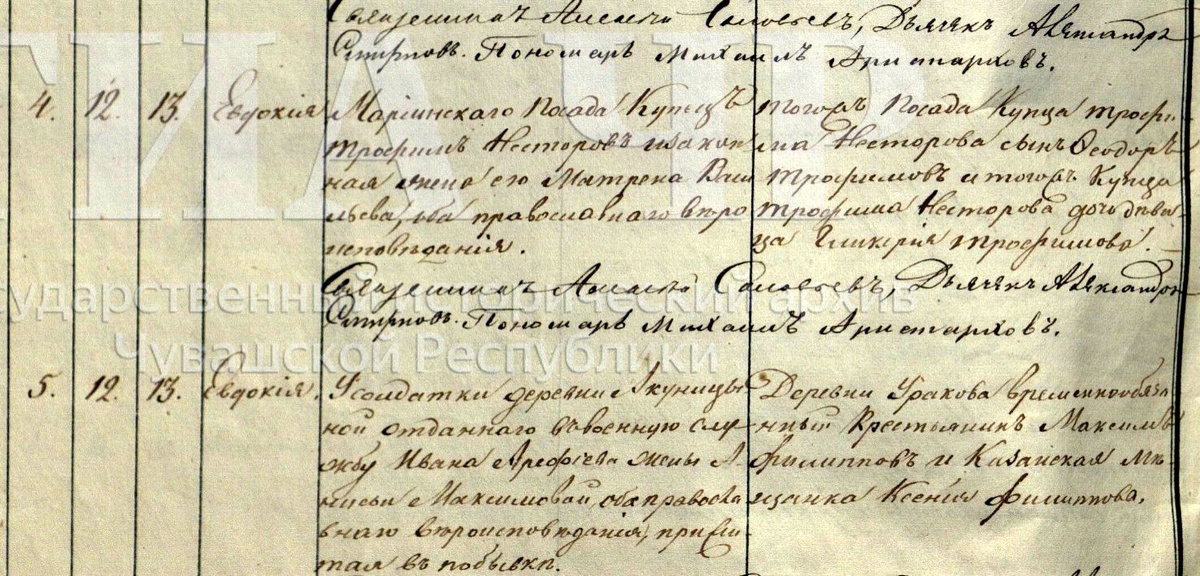 Священникъ Алексѣй Соловьевъ, Дьячекъ Александръ
Смирновъ. Пономарь Михаилъ Аристарховъ.
4. 12. 13. Евдокія
Маріинскаго Посада Купецъ
Трофимъ Несторовъ и закон
ная жена его Матрена Васи
льева, оба православнаго вѣро
исповѣданія.
тогожъ Посада Купца Трофи-
ма Несторова сынъ Ѳеодоръ
Трофимовъ и тогожъ Купца
Трофима Несторова дочь дѣви-
ца Гликерія Трофимова.
Священникъ Алексѣй Соловьевъ, Дьячекъ Александръ
Смирновъ. Пономарь Михаилъ Аристарховъ.
5. 12. 13. Евдокія.
У солдатки деревни Акуницы
ной отданнаго въ военную слу
жбу Ивана Арефіева жены А-
нисьи Максимовой, оба правосла
внаго вѣроисповѣданія, прижи-
тая въ побывки.
Деревни Уракова временнообяза
нный Крестьянинъ Максимъ
Филипповъ и Казанская Мѣ-
щанка Ксенія Филиппова.
ГИА ЧР
Государственный исторический архив
Чувашской Республики